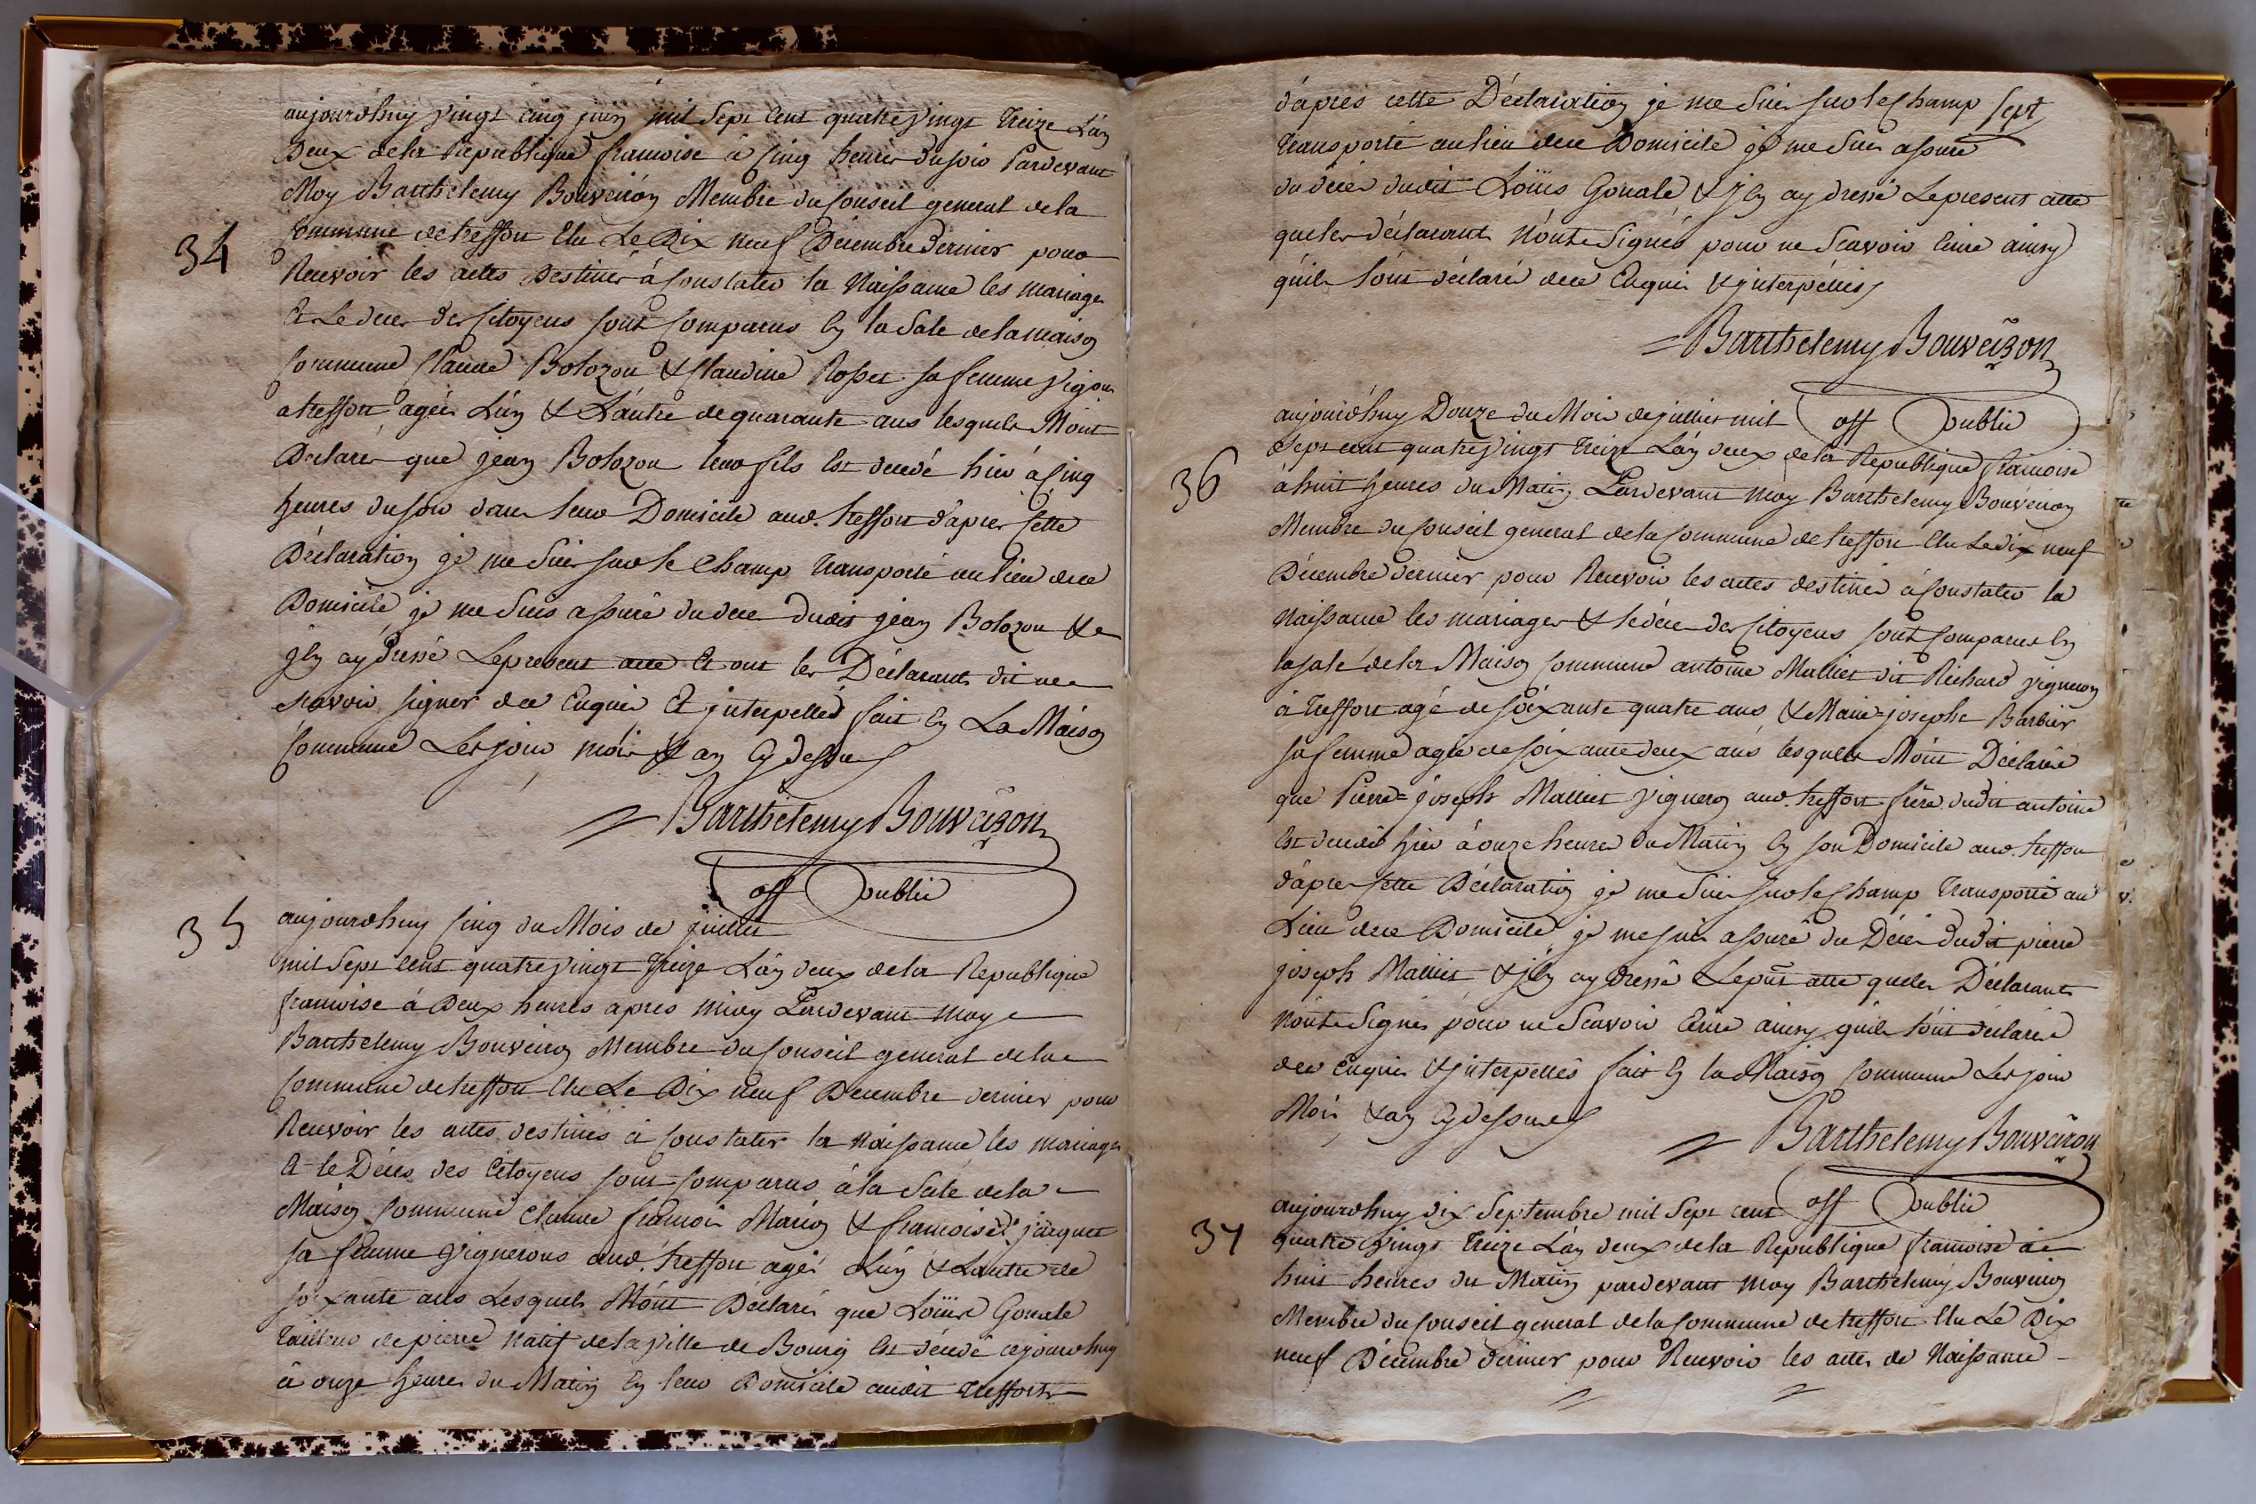 aujourdhuy vingt cinq juin mil sept cent quatre vingt treize L'an
Deux de la Republique francoise à cinq heures du soir Pardevant
Moy Barthelemy Bouveiron Membre du Conseil general de la
34
Commune de treffort Elu Le Dix neuf Decembre dernier pour
Recevoir les actes Destinés à Constater la Naissance les mariages
Et Le deces des Citoyens sont Comparus En la Sale de la maison
Commune Claude Bolozon & Claudine Rosset sa femme vigrons
a treffort agés L'un & L'autre de quarante ans lesquels M'ont
Declarés que jean Bolozon leur fils Est decedé hier à cinq
heures du soir dans leur Domicile aud. treffort d'apres Cette
Déclaration je me suis sur le Champ transporté au lieu dece
Domicile je me suis assuré du deces dudit jean Bolozon &
j'En ay Dressé Le present acte Et ont les Déclarants dit ne
scavoir signer dece Enquis Et interpellés fait En La Maison
Commune Les jour mois & an Cy Dessus
Barthelemy Bouveiron
off public
35
aujourdhuy Cinq du Mois de juillet
mil Sept cent quatre vingt treize L'an deux de la Republique
francoise à Deux heures apres midy Pardevant moy
Barthelemy Bouveiron Membre du Conseil general de la
Commune de treffort Elu Le Dix neuf Decembre dernier pour
Recevoir les actes destinés à Constater la Naissance les mariages
& le Déces des Citoyens sont Comparus à la Sale de la
Maison Commune Claude francois Marion & francoise jacquet
sa femme Vignerons aud. treffort agés L'un & L'autre de
soixante ans Lesquels M'ont Déclarés que Loüis Gonale
tailleur de pierre Natif de la ville de Bourg Est décedé cejourdhuy
à onze heures du Matin En leur Domicile audit treffort
d'après cette Déclaration je me suis sur le Champ
sept
transporté au lieu dece Domicile je me suis assuré
du déces dudit Loüis Gonale & j'En ay dressé Le present acte
que les déclarants N'ont Signés pour ne Scavoir Ecrire ainsy
qu'ils l'ont déclaré dece Enquis & interpellés
Barthelemy Bouveiron
off public
aujourdhuy Douze du Mois de juillet mil
sept cent quatre vingt treize L'an deux de la Republique francoise
36
à huit heures du Matin Pardevant Moy Barthelemy Bouveiron
Membre du Conseil general de la Commune de treffort Elu Le dix neuf
Décembre dernier pour Recevoir les actes destinés à Constater la
Naissance les mariages & le déces des Citoyens sont Comparus En
la sale de la Maison Commune antoine Mallet dit Richard vigneron
à treffort agé de soixante quatre ans & Marie=josephe Barbier
sa femme agée de soixante deux ans lesquels M'ont Déclaré
que Pierre=joseph Mallet vigneron aud. treffort frère dudit antoine
Est decedé hier à onze heures du Matin En son Domicile aud. treffort
d'apres cette Déclaration je me suis sur le Champ transporté au
Lieu dece Domicile je me suis assuré du Déces dudit pierre
joseph Mallet & j'En ay dressé Le pnt acte que les Déclarants
N'ont Signés pour ne Scavoir Ecrire ainsy qu'ils l'ont déclaré
dece Enquis & interpellés fait En la Maison Commune Les jour
Mois & an Cy dessus
Barthelemy Bouveiron
off public
aujourdhuy dix Septembre mil Sept cent
37
quatre vingt treize L'an deux de la République francoise à
huit heures du Matin pardevant Moy Barthelemy Bouveiron
Membre du Conseil general de la Commune de treffort Elu Le Dix
neuf Décembre dernier pour Recevoir les actes de Naissance